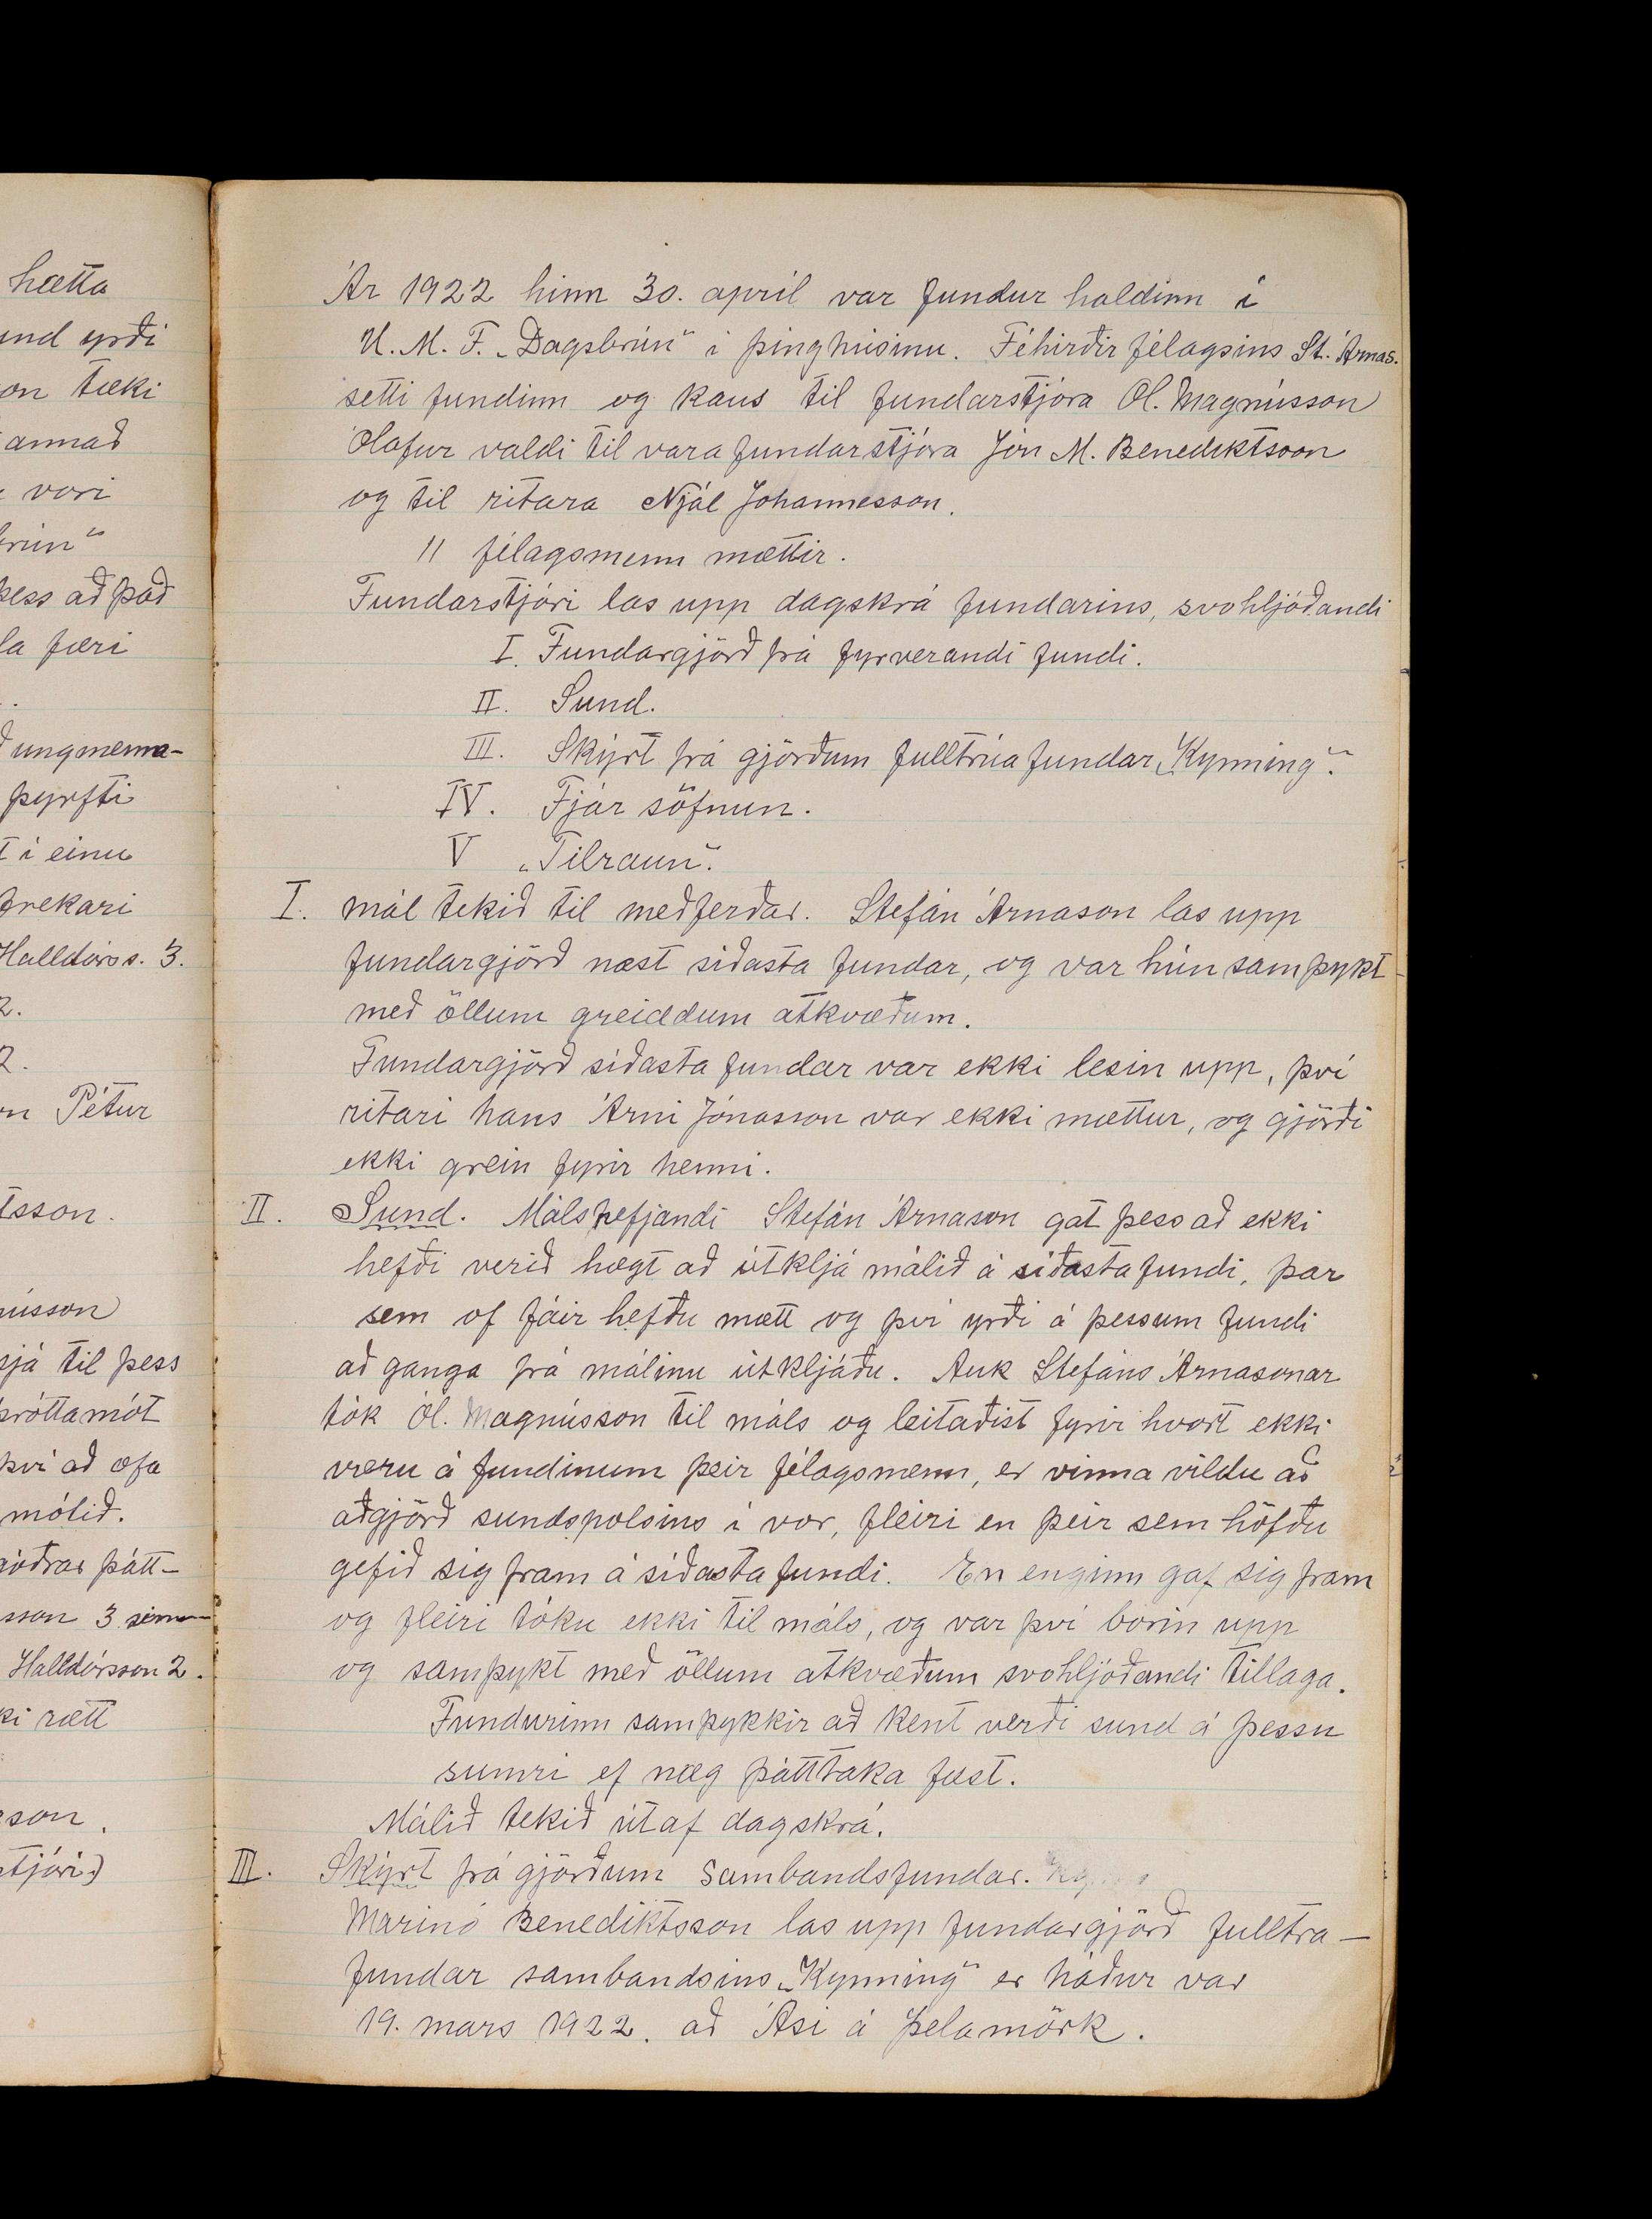 hætta
und yrði
on tæki
annað
vori
brún"
þess að það
la færi
ð ungmenna-
þyrfti
t í einu
frekari
Halldórss. 3.
2.
2.
on Pétur
tsson.
nússon
sjá til þess
þróttamót
því að æfa
mótið.
góðrar þátt-
sson 3 sinn
Halldórsson 2.
ki rætt
sson.
stjóri)
Ár 1922 hinn 30. apríl var fundur haldinn í
U. M. F. „Dagsbrún" í þinghúsinu. Féhirðir félagsins St. Árnas.
setti fundinn og kaus til fundarstjóra Ól. Magnússon
Ólafur valdi til vara fundarstjóra Jón M. Benediktsson
og til ritara Njál Johannesson.
11 félagsmenn mættir.
Fundarstjóri las upp dagskrá fundarins, svohljóðandi
I. Fundargjörð frá fyrverandi fundi.
II. Sund.
III. Skýrt frá gjörðum fulltrúafundar „Kynning".
IV. Fjár söfnun.
V „Tilraun".
I. mál tekið til meðferðar. Stefán Árnason las upp
fundargjörð næst síðasta fundar, og var hún samþykt
með öllum greiddum atkvæðum.
Fundargjörð síðasta fundar var ekki lesin upp, því
ritari hans Árni Jónasson var ekki mættur, og gjörði
ekki grein fyrir henni.
II. Sund. Málshefjandi Stefán Árnason gat þess að ekki
hefði verið hægt að útkljá málið á síðasta fundi, þar
sem of fáir hefðu mætt og því yrði á þessum fundi
að ganga frá málinu útkljáðu. Auk Stefáns Árnasonar
tók Ól. Magnússon til máls og leitaðist fyrir hvort ekki
væru á fundinum þeir félagsmenn, er vinna vildu að
aðgjörð sundspolsins í vor, fleiri en þeir sem höfðu
gefið sig fram á síðasta fundi. En enginn gaf sig fram
og fleiri tóku ekki til máls, og var því borin upp
og samþykt með öllum atkvæðum svohljóðandi tillaga.
Fundurinn samþykkir að kent verði sund á þessu
sumri ef næg þátttaka fæst.
Málið tekið útaf dagskrá.
III. Skýrt frá gjörðum sambandsfundar.
Marinó Benediktsson las upp fundargjörð fulltra-
fundar sambandsins „Kynning" er háður var
19. mars 1922. að Ási á Þelamörk.